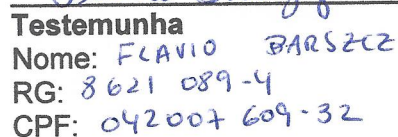 Testemunha
Nome: FLAVIO BARSZCZ
RG: 8621 089-4
CPF: 042007 609-32